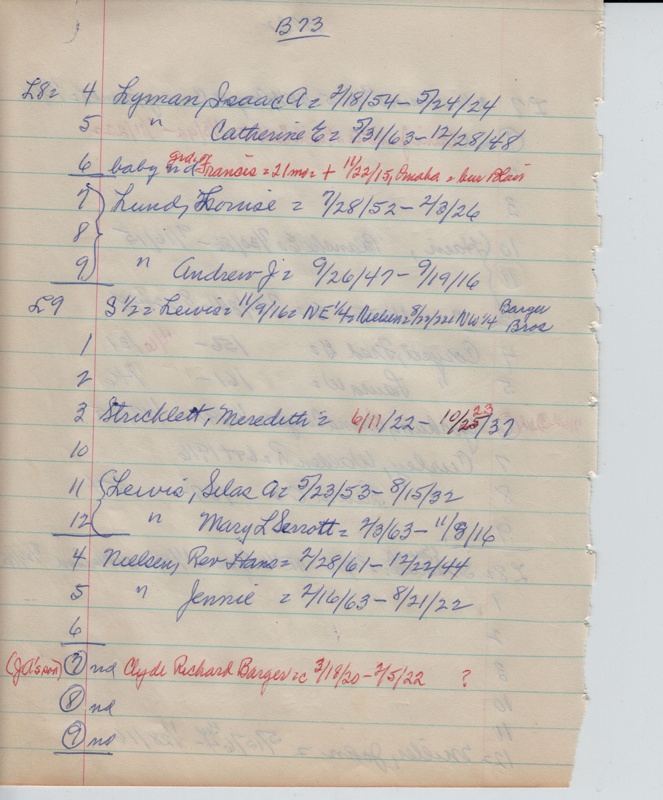 B73
L8= 4 Lyman, Isaac A = 2/18/54 - 5/24/24
5 " Catherine E = 5/31/63 - 12/28/48
6 baby nd grd of Fransis = 21mo = + 11/22/15, Omaha = bur Blair
7 Lund, Louise = 7/28/52 - 2/3/26
8
9 " Andrew J = 9/26/47 - 9/19/16
L9 S 1/2 = Lewis = 11/9/16 = NE 1/4 = Nielsen = 8/22/22 = NW 1/4 Barger Bros
1
2
3 Stricklett, Meredith = 6/17/22 - 10/25/37 23
10
11 Lewis, Silas A = 5/23/53 - 8/15/32
12 " Mary L Serrott = 2/3/63 - 11/8/16
4 Nielsen, Rev Hans = 2/28/61 - 12/22/44
5 " Jennie = 2/16/63 - 8/21/22
6
(JA's son) 7 nd Clyde Richard Barger = c 3/19/20 - 2/5/22 ?
8 nd
9 nd